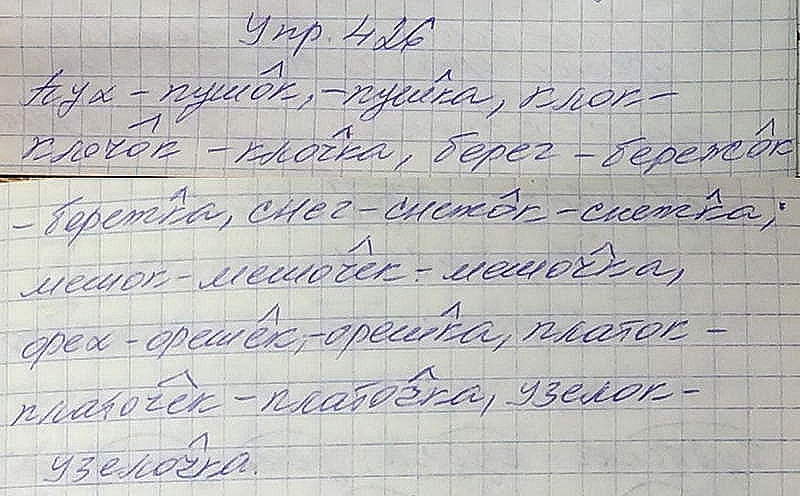 Упр. 426
Пух - пушок, - пушка, клок -
клочок - клочка, берег - бережок
- бережка, снег - снежок - снежка,
мешок - мешочек - мешочка,
орех - орешек, - орешка, платок -
платочек - платочка, узелок -
узелочка.